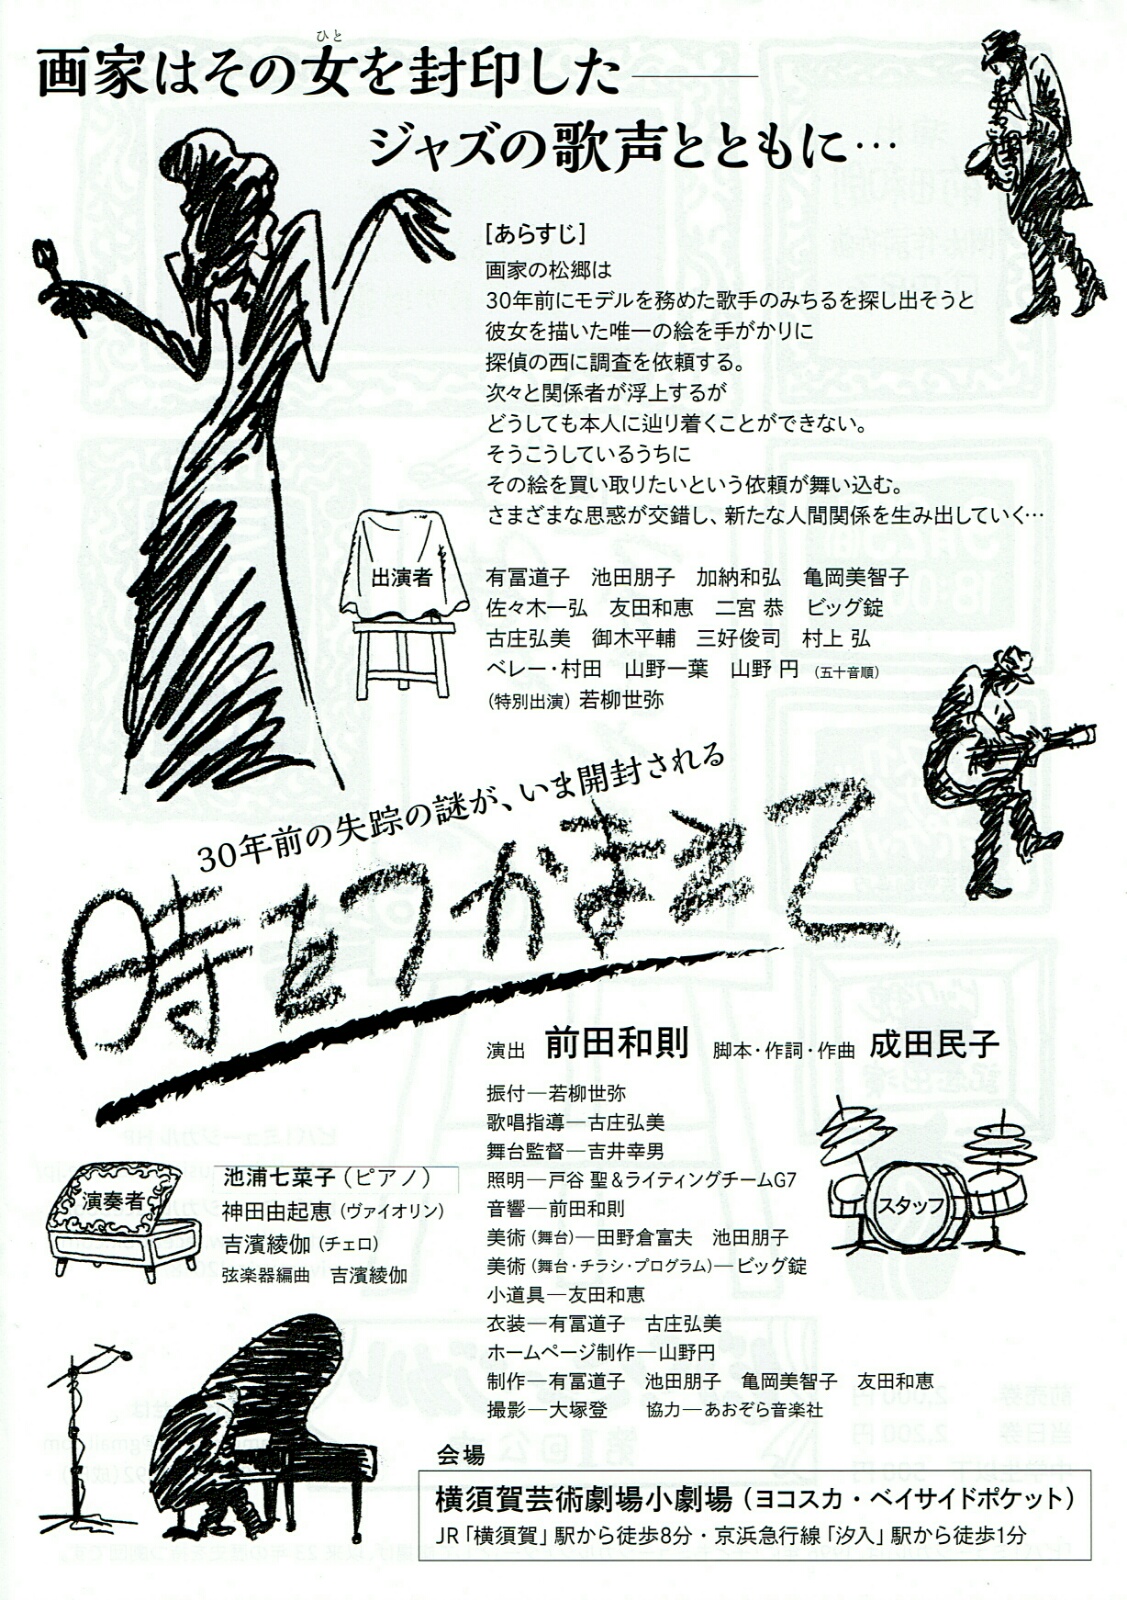 画家はその女を封印した――
ひと
ジャズの歌声とともに…
[あらすじ]
画家の松郷は
30年前にモデルを務めた歌手のみちるを探し出そうと
彼女を描いた唯一の絵を手がかりに
探偵の西に調査を依頼する。
次々と関係者が浮上するが
どうしても本人に辿り着くことができない。
そうこうしているうちに
その絵を買い取りたいという依頼が舞い込む。
さまざまな思惑が交錯し、新たな人間関係を生み出していく…
出演者
有冨道子　池田朋子　加納和弘　亀岡美智子
佐々木一弘　友田和恵　二宮 恭　ビッグ錠
古庄弘美　御木平輔　三好俊司　村上 弘
ベレー・村田　山野一葉　山野 円　(五十音順)
(特別出演) 若柳世弥
30年前の失踪の謎が、いま開封される
時をつかまえて
演出　前田和則　脚本・作詞・作曲　成田民子
振付―若柳世弥
歌唱指導―古庄弘美
舞台監督―吉井幸男
照明―戸谷 聖&ライティングチームG7
音響―前田和則
美術(舞台)―田野倉富夫　池田朋子
美術(舞台・チラシ・プログラム)―ビッグ錠
小道具―友田和恵
衣装―有冨道子　古庄弘美
ホームページ制作―山野円
制作―有冨道子　池田朋子　亀岡美智子　友田和恵
撮影―大塚登　協力―あおぞら音楽社
スタッフ
演奏者
池浦七菜子(ピアノ)
神田由起恵(ヴァイオリン)
吉濱綾伽(チェロ)
弦楽器編曲　吉濱綾伽
会場
横須賀芸術劇場小劇場(ヨコスカ・ベイサイドポケット)
JR「横須賀」駅から徒歩8分・京浜急行線「汐入」駅から徒歩1分